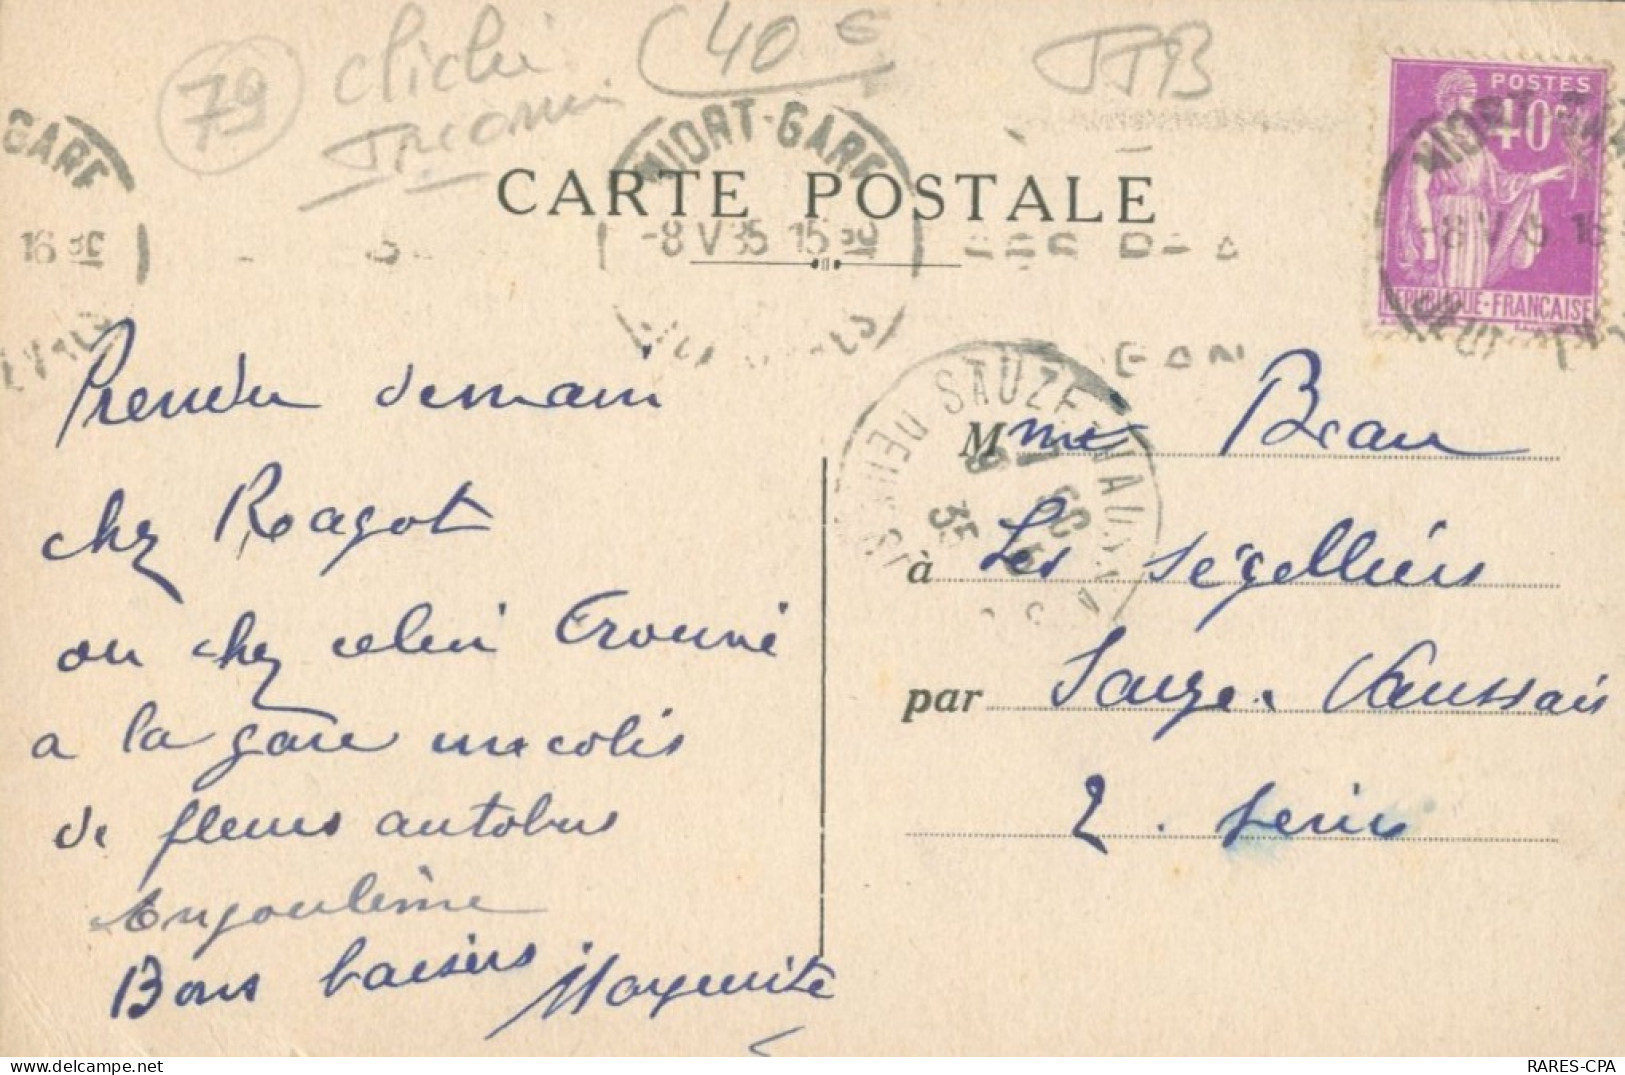 79
cliché
40 €
JJB
GARE
16 30
NIORT-GARE
-8 V 35 15 30
CARTE POSTALE
POSTES
40c
REPUBLIQUE-FRANÇAISE
NIORT
-8 V
SAUZE-VAUSSAIS
DEUX-SEVRES
35
Prendre demain
chez Ragot
ou chez
a la gare un colis
de fleurs autobus
Angoulême
Bons baisers Marguerite
Mme Beau
à Les Ségelliers
par Sauzé. Vaussais
2. Sèvres
RARES-CPA